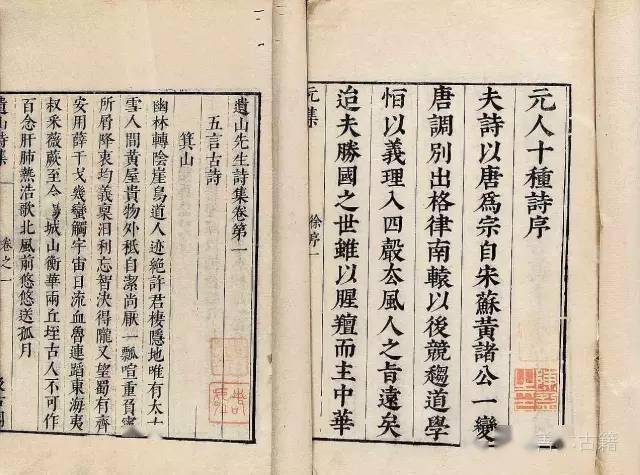 元人十種詩序
夫詩以唐爲宗自宋蘇黃諸公一變
唐調別出格律南轅以後競趨道學
恒以義理入四聲去風人之旨遠矣
迨夫勝國之世雖以腥羶而主中華
元集
徐序一
遺山先生詩集卷第一
五言古詩
箕山
幽林轉陰崖鳥道人迹絕許君棲隱地唯有太古
雪人間黃屋貴物外秪自潔尚厭一瓢喧重負寧
所屑降衷均義稟汩利忘智決得隴又望蜀有齊
安用薛干戈幾蠻觸宇宙日流血魯連蹈東海夷
叔采薇蕨至今陽城山衡華兩丘垤古人不可作
百念肝肺熱浩歌北風前悠悠送孤月
遺山詩集
卷之一
古籍